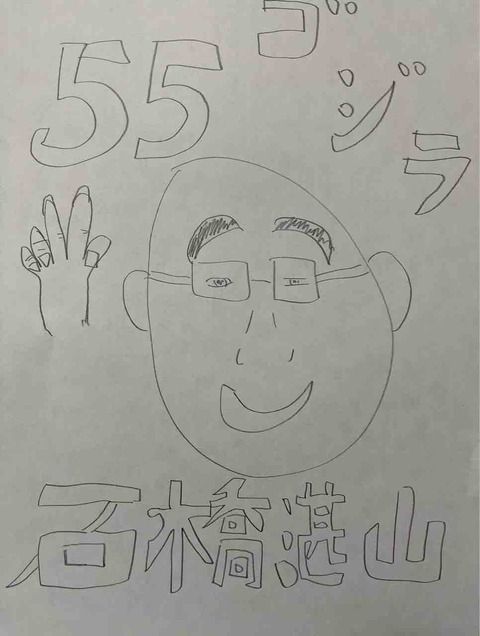 55
ゴジラ
石橋湛山